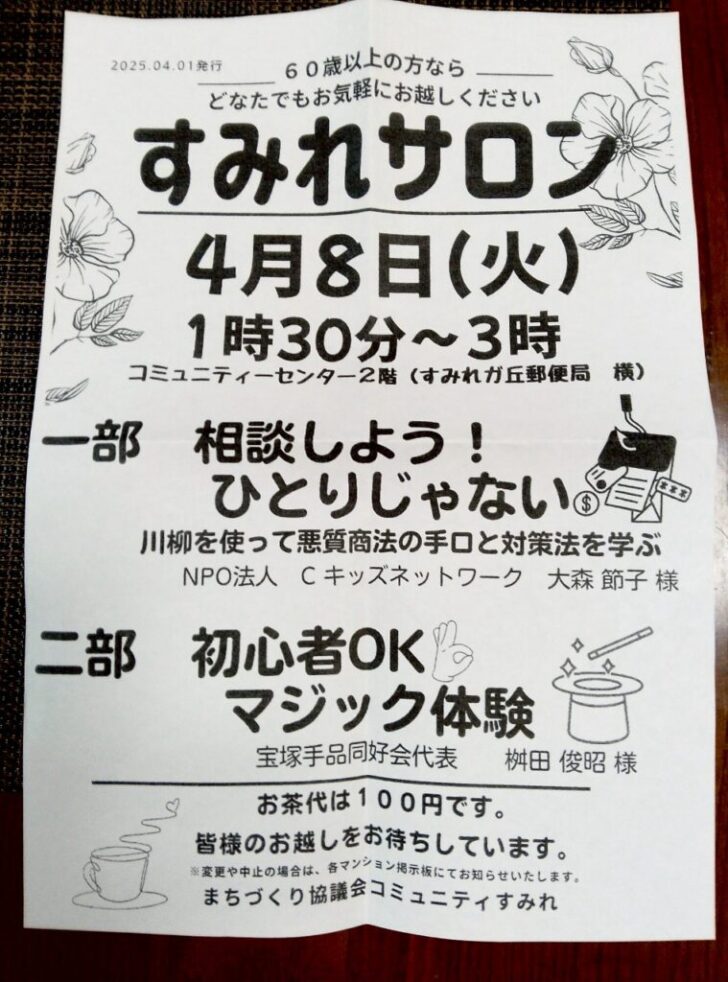 2025.04.01発行
60歳以上の方なら
どなたでもお気軽にお越しください
すみれサロン
4月8日(火)
1時30分～3時
コミュニティーセンター2階（すみれガ丘郵便局 横）
一部 相談しよう！
ひとりじゃない
$
***
川柳を使って悪質商法の手口と対策法を学ぶ
NPO法人 C キッズネットワーク 大森 節子 様
二部 初心者OK
マジック体験
宝塚手品同好会代表 桝田 俊昭 様
お茶代は100円です。
皆様のお越しをお待ちしています。
※変更や中止の場合は、各マンション掲示板にてお知らせいたします。
まちづくり協議会コミュニティすみれ